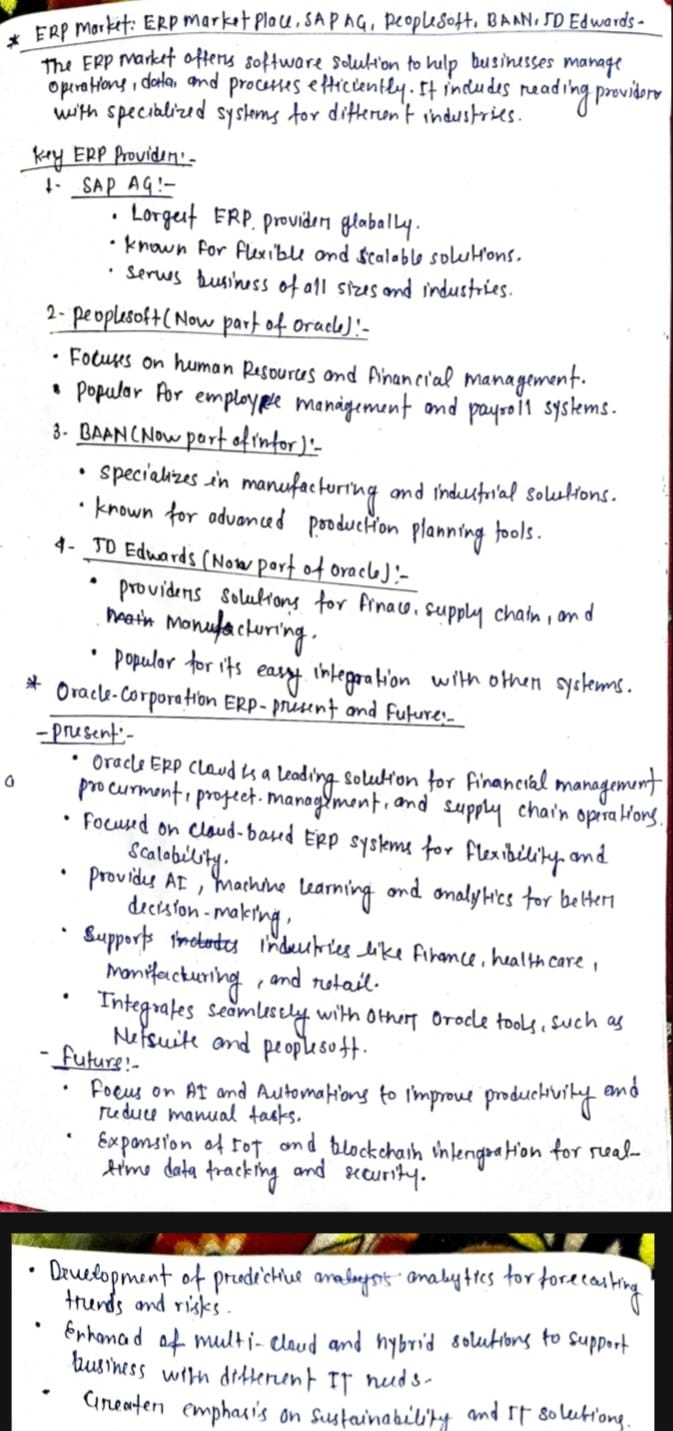 * ERP Market: ERP Market Place, SAP AG, PeopleSoft, BAAN, JD Edwards-
The ERP market offers software solution to help businesses manage
operations, data, and processes efficiently. It includes reading providers
with specialized systems for different industries.
Key ERP Providers:-
1- SAP AG:-
• Largest ERP provider globally.
• known for flexible and scalable solutions.
• serves business of all sizes and industries.
2- peoplesoft (Now part of oracle):-
• Focuses on human Resources and financial management.
• Popular for employee management and payroll systems.
3- BAAN (Now part of infor):-
• specializes in manufacturing and industrial solutions.
• known for advanced production planning tools.
4- JD Edwards (Now part of oracle):-
• providers solutions for finace, supply chain, and
Manufacturing.
• popular for its easy integration with other systems.
* Oracle-Corporation ERP- present and Future:-
- present:-
• Oracle ERP Cloud is a leading solution for financial management
procurment, project management, and supply chain operations.
• Focused on cloud-based ERP systems for flexibility and
Scalability.
• provides AI, machine learning and analytics for better
decision-making,
• Supports industries like finance, healthcare,
manifacturing, and retail.
• Integrates seamlessly with other oracle tools, such as
Netsuite and peoplesoft.
- future:-
• Focus on AI and Automations to improve productivity and
reduce manual tasks.
• Expansion of IoT and blockchain intengration for real-
time data tracking and security.
• Development of predictive analytics for forecasting
trends and risks.
• Enhanad of multi-cloud and hybrid solutions to support
business with different IT needs-
• Greater emphasis on sustainability and IT solutions.